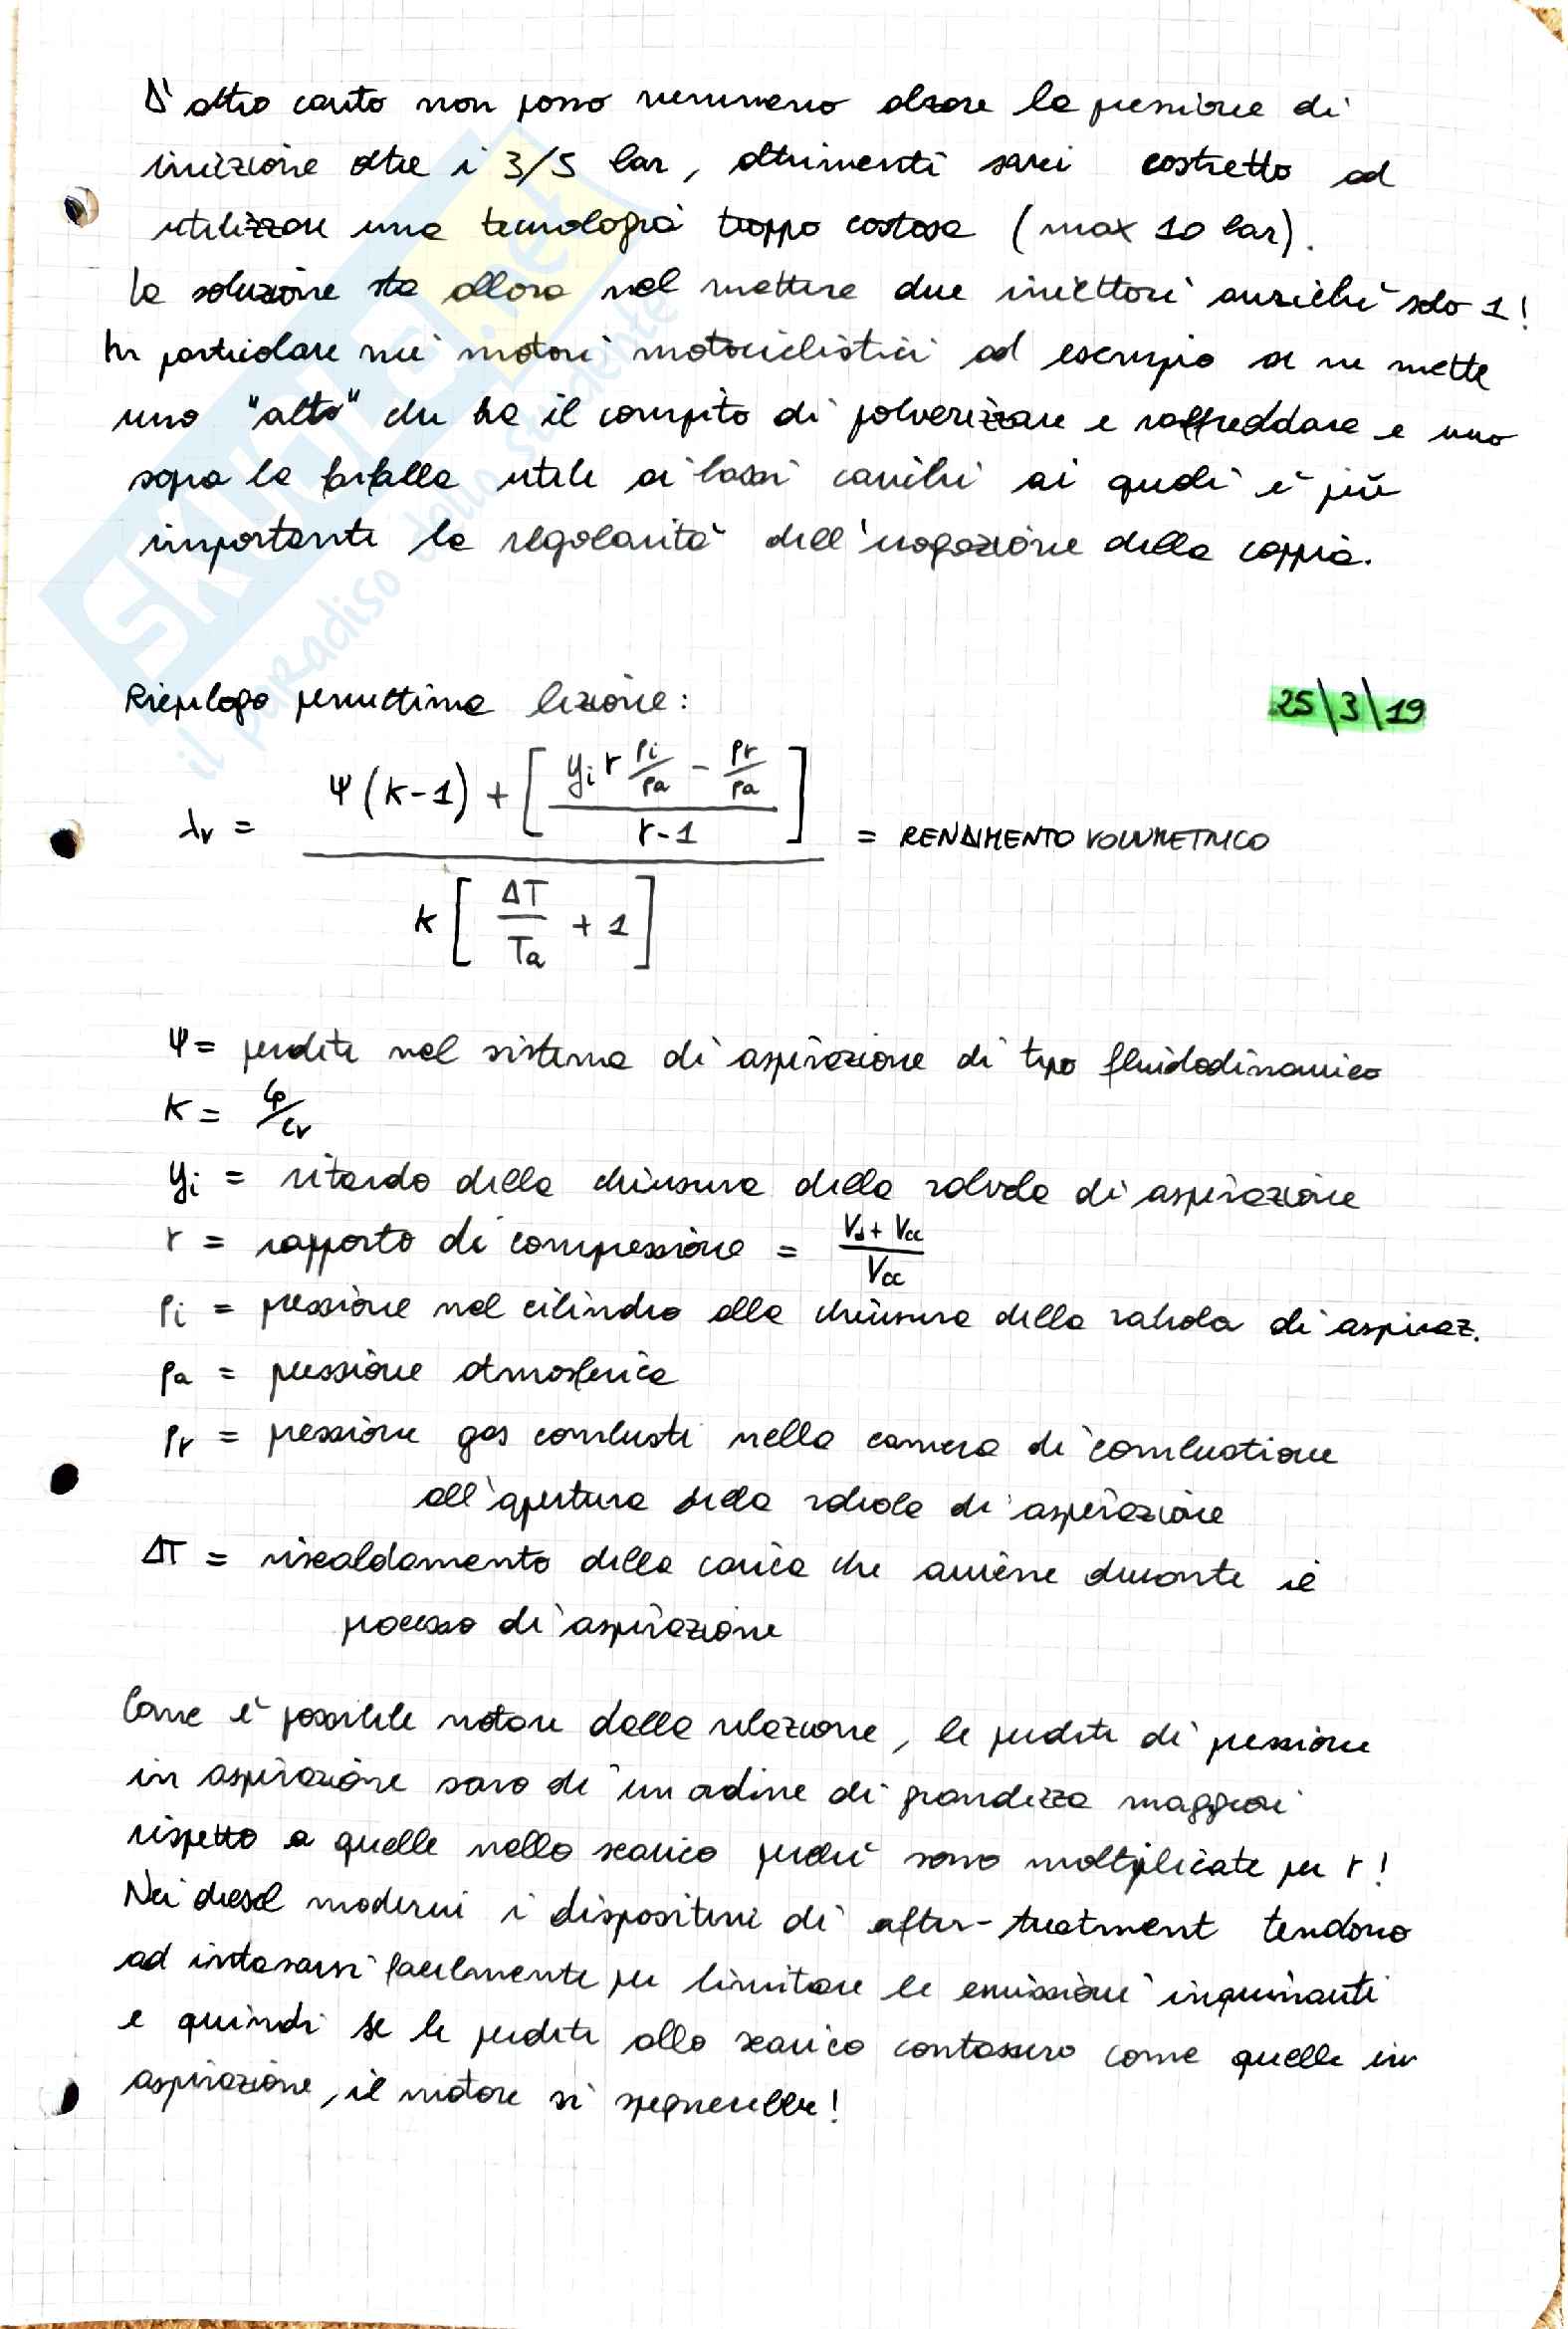 D'altro canto non posso nemmeno alzare la pressione di
iniezione oltre i 3/5 bar, altrimenti sarei costretto ad
utilizzare una tecnologia troppo costosa (max 10 bar).
La soluzione sta allora nel mettere due iniettori anziché solo 1!
In particolare nei motori motociclistici ad esempio se ne mette
uno "alto" che ha il compito di polverizzare e raffreddare e uno
sopra la farfalla utile ai bassi carichi ai quali è più
importante la regolarità dell'erogazione della coppia.
Riepilogo penultima lezione: 25/3/19
λv = ψ(k-1) + [ (yi r pi/pa - pr/pa) / (r-1) ] / k [ ΔT/Ta + 1 ] = RENDIMENTO VOLUMETRICO
ψ = perdite nel sistema di aspirazione di tipo fluidodinamico
K = cp/cv
yi = ritardo della chiusura della valvola di aspirazione
r = rapporto di compressione = Vd + Vcc / Vcc
pi = pressione nel cilindro alla chiusura della valvola di aspiraz.
pa = pressione atmosferica
pr = pressione gas combusti nella camera di combustione
all'apertura della valvola di aspirazione
ΔT = riscaldamento della carica che avviene durante il
processo di aspirazione
Come è possibile notare dalla relazione, le perdite di pressione
in aspirazione sono di un ordine di grandezza maggiori
rispetto a quelle nello scarico perché sono moltiplicate per r!
Nei diesel moderni i dispositivi di after-treatment tendono
ad intasarsi facilmente per limitare le emissioni inquinanti
e quindi se le perdite allo scarico contassero come quelle in
aspirazione, il motore si spegnerebbe!
SKUOLA.net
il paradiso dello studente